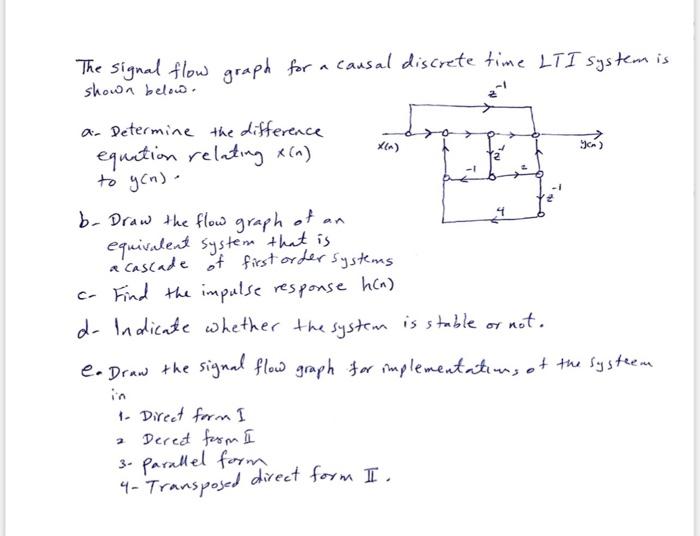 The signal flow graph for a causal discrete time LTI system is
shown below.
z⁻¹
a- Determine the difference
equation relating x(n)
to y(n).
x(n)
y(n)
z⁻¹
-1
2
z⁻¹
4
b- Draw the flow graph of an
equivalent system that is
a cascade of first order systems
c- Find the impulse response h(n)
d- Indicate whether the system is stable or not.
e. Draw the signal flow graph for implementations of the systeem
in
1- Direct form I
2 Dered form II
3- parallel form
4- Transposed direct form II.